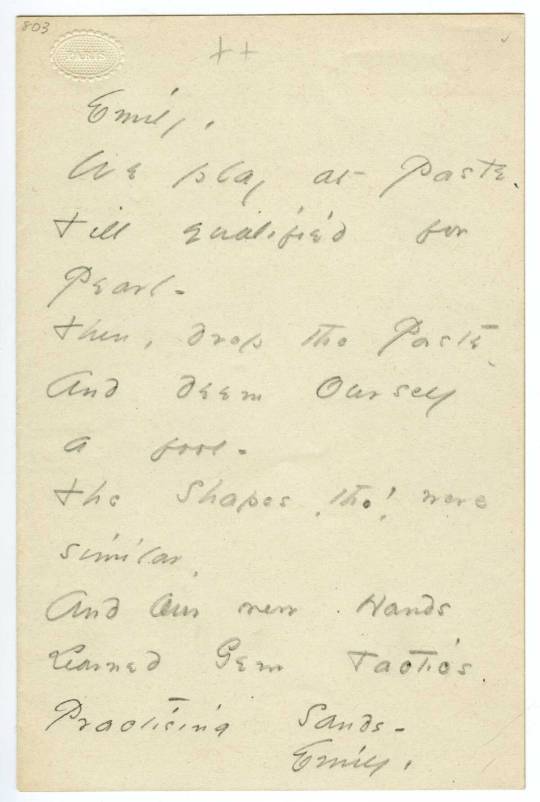 803
PARIS
++
Emily.
We play at Paste.
till qualified for
Pearl -
then, drop the Paste.
And deem Ourself
a fool -
the Shapes, tho', were
similar,
And Our new Hands
Learned Gem tactics
Practising Sands -
Emily.